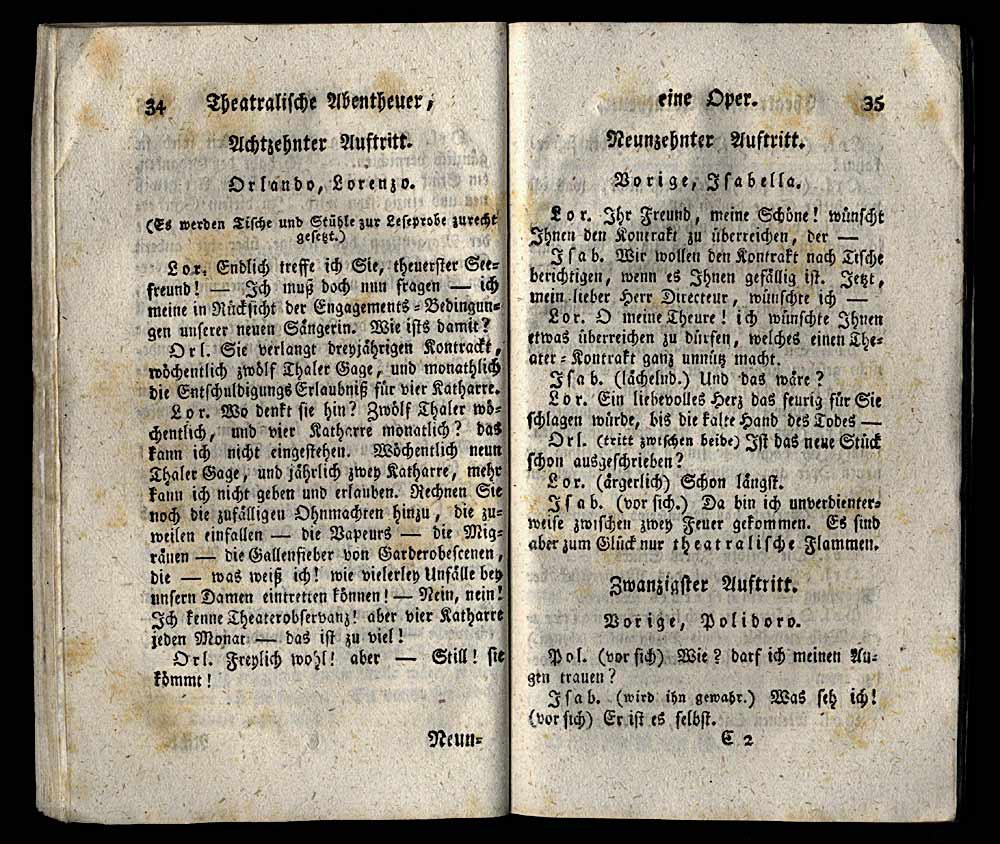 34 Theatralische Abentheuer,
Achtzehnter Auftritt.
Orlando, Lorenzo.
(Es werden Tische und Stühle zur Leseprobe zurecht
gesetzt.)
Lor. Endlich treffe ich Sie, theuerster See-
freund! — Ich muß doch nun fragen — ich
meine in Rücksicht der Engagements-Bedingun-
gen unserer neuen Sängerin. Wie ists damit?
Orl. Sie verlangt dreyjährigen Kontrackt,
wöchentlich zwölf Thaler Gage, und monathlich
die Entschuldigungs Erlaubniß für vier Katharre.
Lor. Wo denkt sie hin? Zwölf Thaler wö-
chentlich, und vier Katharre monatlich? das
kann ich nicht eingestehen. Wöchentlich neun
Thaler Gage, und jährlich zwey Katharre, mehr
kann ich nicht geben und erlauben. Rechnen Sie
noch die zufälligen Ohnmachten hinzu, die zu-
weilen einfallen — die Vapeurs — die Mig-
räuen — die Gallenfieber von Garderobescenen,
die — was weiß ich! wie vielerley Unfälle bey
unsern Damen eintretten können! — Nein, nein!
Ich kenne Theaterobservanz! aber vier Katharre
jeden Monat — das ist zu viel!
Orl. Freylich wohl! aber — Still! sie
kömmt!
Neun-
eine Oper. 35
Neunzehnter Auftritt.
Vorige, Isabella.
Lor. Ihr Freund, meine Schöne! wünscht
Ihnen den Kontrakt zu überreichen, der —
Isab. Wir wollen den Kontrakt nach Tische
berichtigen, wenn es Ihnen gefällig ist. Jetzt,
mein lieber Herr Directeur, wünschte ich —
Lor. O meine Theure! ich wünschte Ihnen
etwas überreichen zu dürfen, welches einen The-
ater-Kontrakt ganz unnütz macht.
Isab. (lächelnd.) Und das wäre?
Lor. Ein liebevolles Herz das feurig für Sie
schlagen würde, bis die kalte Hand des Todes —
Orl. (tritt zwischen beide) Ist das neue Stück
schon ausgeschrieben?
Lor. (ärgerlich) Schon längst.
Isab. (vor sich.) Da bin ich unverdienter-
weise zwischen zwey Feuer gekommen. Es sind
aber zum Glück nur theatralische Flammen.
Zwanzigster Auftritt.
Vorige, Polidoro.
Pol. (vor sich) Wie? darf ich meinen Au-
gen trauen?
Isab. (wird ihn gewahr.) Was seh ich!
(vor sich) Er ist es selbst.
C 2